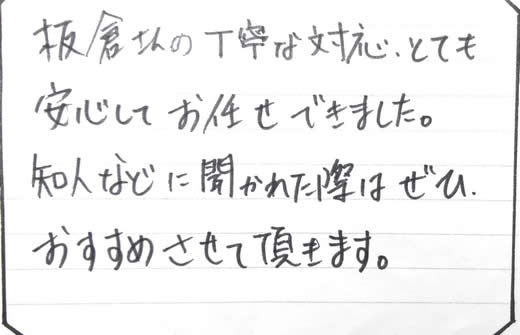 板倉さんの丁寧な対応、とても
安心してお任せできました。
知人などに聞かれた際はぜひ、
おすすめさせて頂きます。